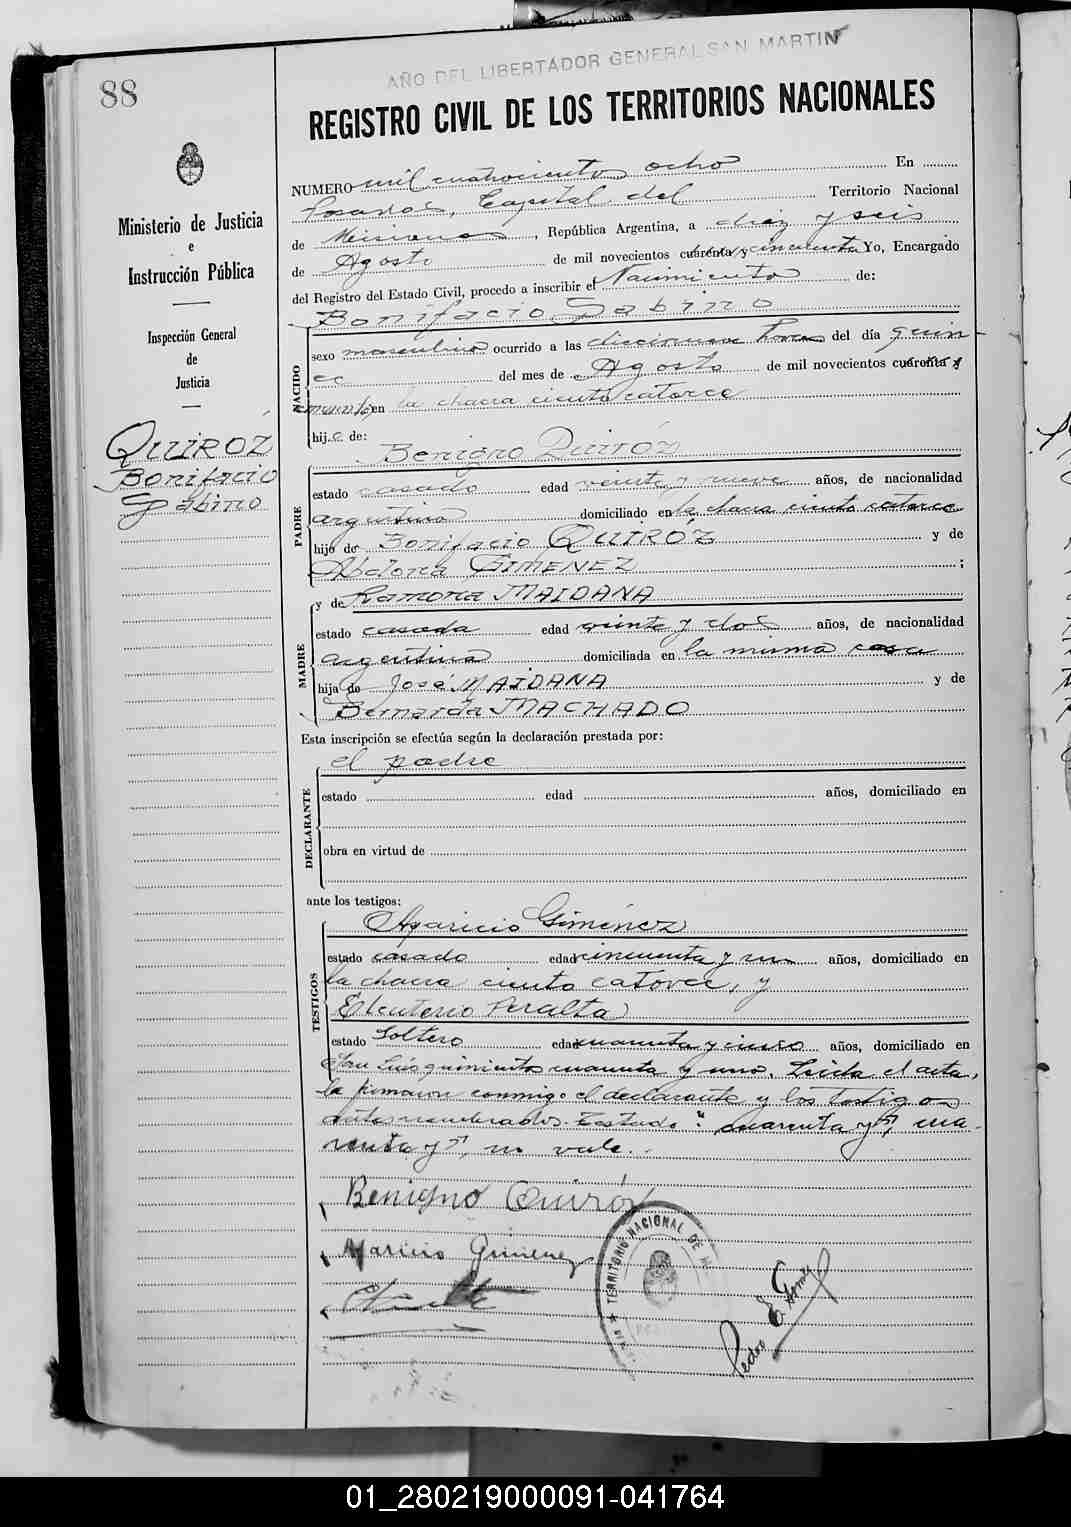 AÑO DEL LIBERTADOR GENERAL SAN MARTIN
88
REGISTRO CIVIL DE LOS TERRITORIOS NACIONALES
Ministerio de Justicia
e
Instrucción Pública
Inspección General
de
Justicia
QUIROZ
Bonifacio
Sabino
NUMERO mil cuatrocientos ocho En
Posadas, Capital del Territorio Nacional
de Misiones, República Argentina, a diez y seis
de Agosto de mil novecientos cuarenta y cincuenta Yo, Encargado
del Registro del Estado Civil, procedo a inscribir el Nacimiento de:
Bonifacio Sabino
NACIDO
sexo masculino ocurrido a las diecinueve horas del día quin-
ce del mes de Agosto de mil novecientos cuarenta y
cincuenta en la chacra ciento catorce
hijo de:
Benigno Quiróz
PADRE
estado casado edad veinte y nueve años, de nacionalidad
argentina domiciliado en la chacra ciento catorce
hijo de Bonifacio QUIRÓZ y de
Abdona GIMENEZ ;
y de Ramona MAIDANA
MADRE
estado casada edad veinte y dos años, de nacionalidad
argentina domiciliada en la misma casa
hija de José MAIDANA y de
Bernarda MACHADO
Esta inscripción se efectúa según la declaración prestada por:
el padre
DECLARANTE
estado edad años, domiciliado en
obra en virtud de
ante los testigos:
Aparicio Giménez
TESTIGOS
estado casado edad cincuenta y un años, domiciliado en
la chacra ciento catorce, y
Eleuterio Peralta
estado Soltero edad cuarenta y cinco años, domiciliado en
San Luis quinientos cuarenta y uno. Leida el acta,
la firmaron conmigo el declarante y los testigos
antes nombrados. Testado: "cuarenta y", cua-
renta y", no vale.
Benigno Quiróz
Aparicio Gimenez
TERRITORIO NACIONAL DE
Pedro E. Gomez
01_280219000091-041764